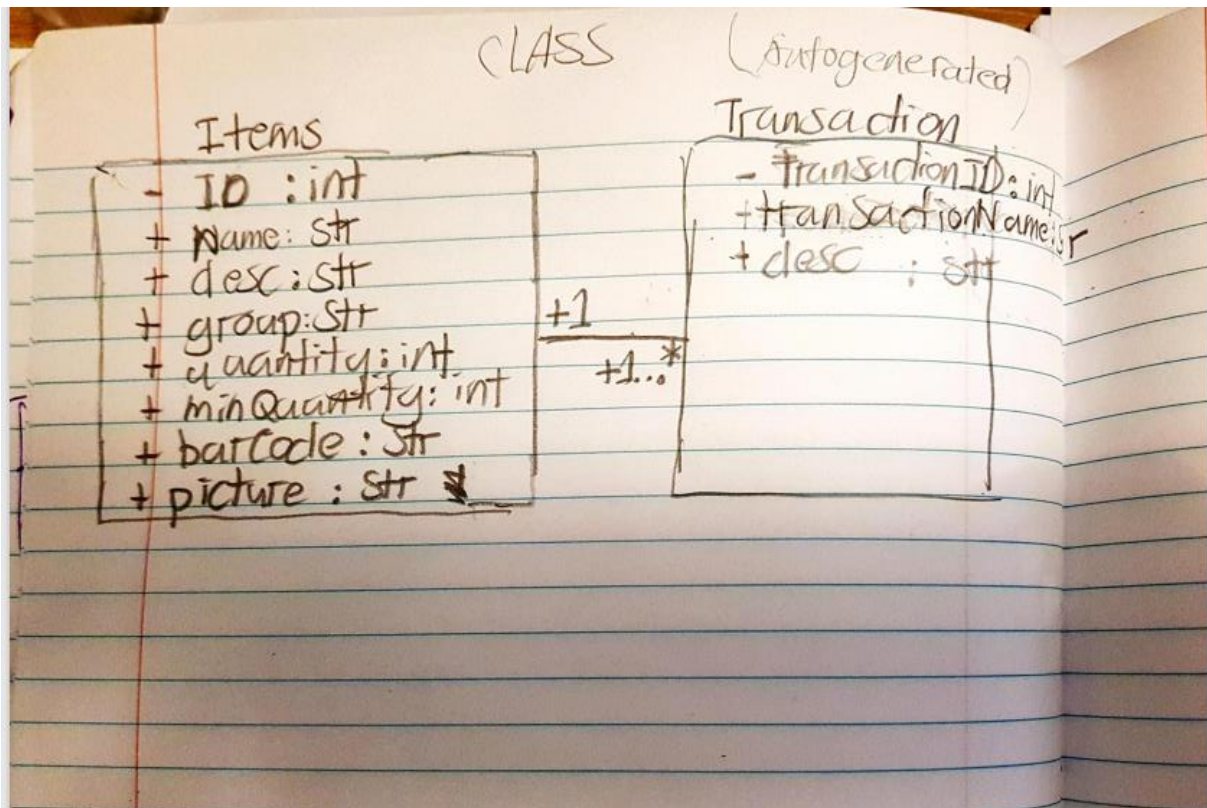 CLASS
(Autogenerated)
Items
- ID : int
+ Name: str
+ desc: str
+ group: str
+ quantity: int
+ minQuantity: int
+ barcode: str
+ picture : str
+1
+1...*
Transaction
- TransactionID: int
+ transactionName: str
+ desc : str